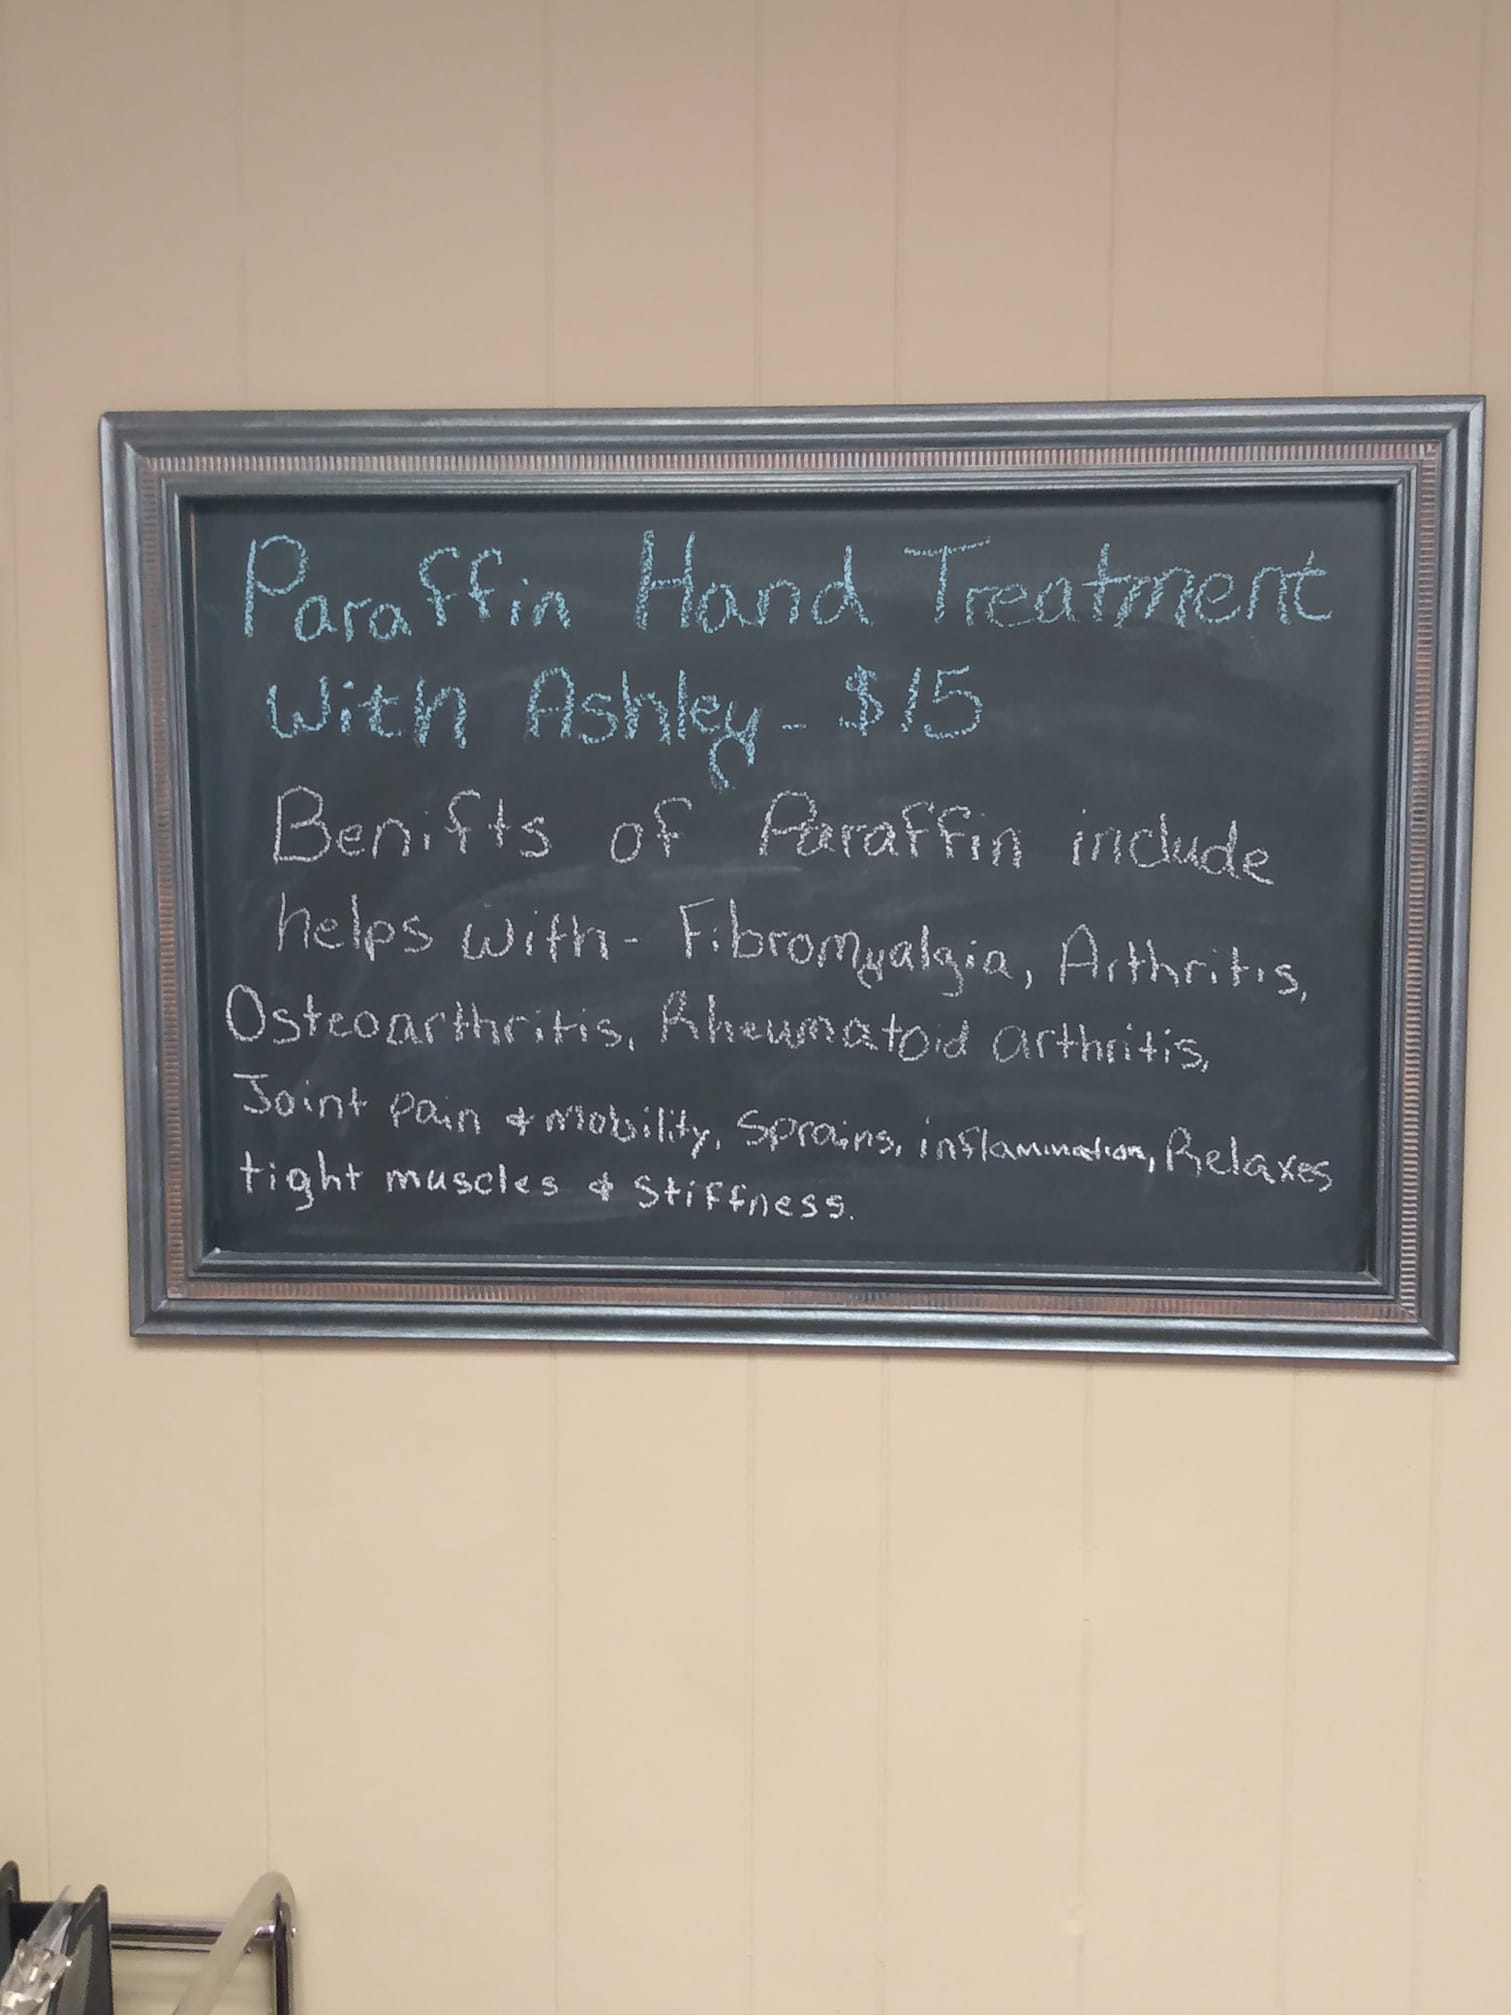 Paraffin Hand Treatment
With Ashley - $15
Benifts of Paraffin include
helps with - Fibromyalgia, Arthritis,
Osteoarthritis, Rheumatoid arthritis,
Joint pain & mobility, Sprains, inflammation, Relaxes
tight muscles & stiffness.